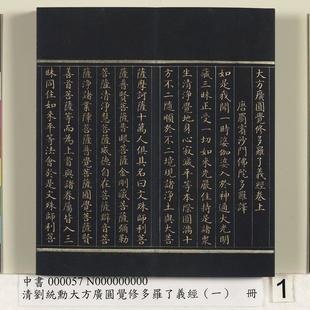 大方廣圓覺修多羅了義經卷上
唐罽賓沙門佛陀多羅譯
如是我聞一時婆伽婆入於神通大光明
藏三昧正受一切如來光嚴住持是諸衆
生清淨覺地身心寂滅平等本際圓滿十
方不二隨順於不二境現諸淨土與大菩
薩摩訶薩十萬人俱其名曰文殊師利菩
薩普賢菩薩普眼菩薩金剛藏菩薩彌勒
菩薩清淨慧菩薩威德自在菩薩辯音菩
薩淨諸業障菩薩普覺菩薩圓覺菩薩賢
善首菩薩等而爲上首與諸眷屬皆入三
昧同住如來平等法會於是文殊師利菩
中書 000057 N000000000
清劉統勳大方廣圓覺修多羅了義經(一) 冊
1